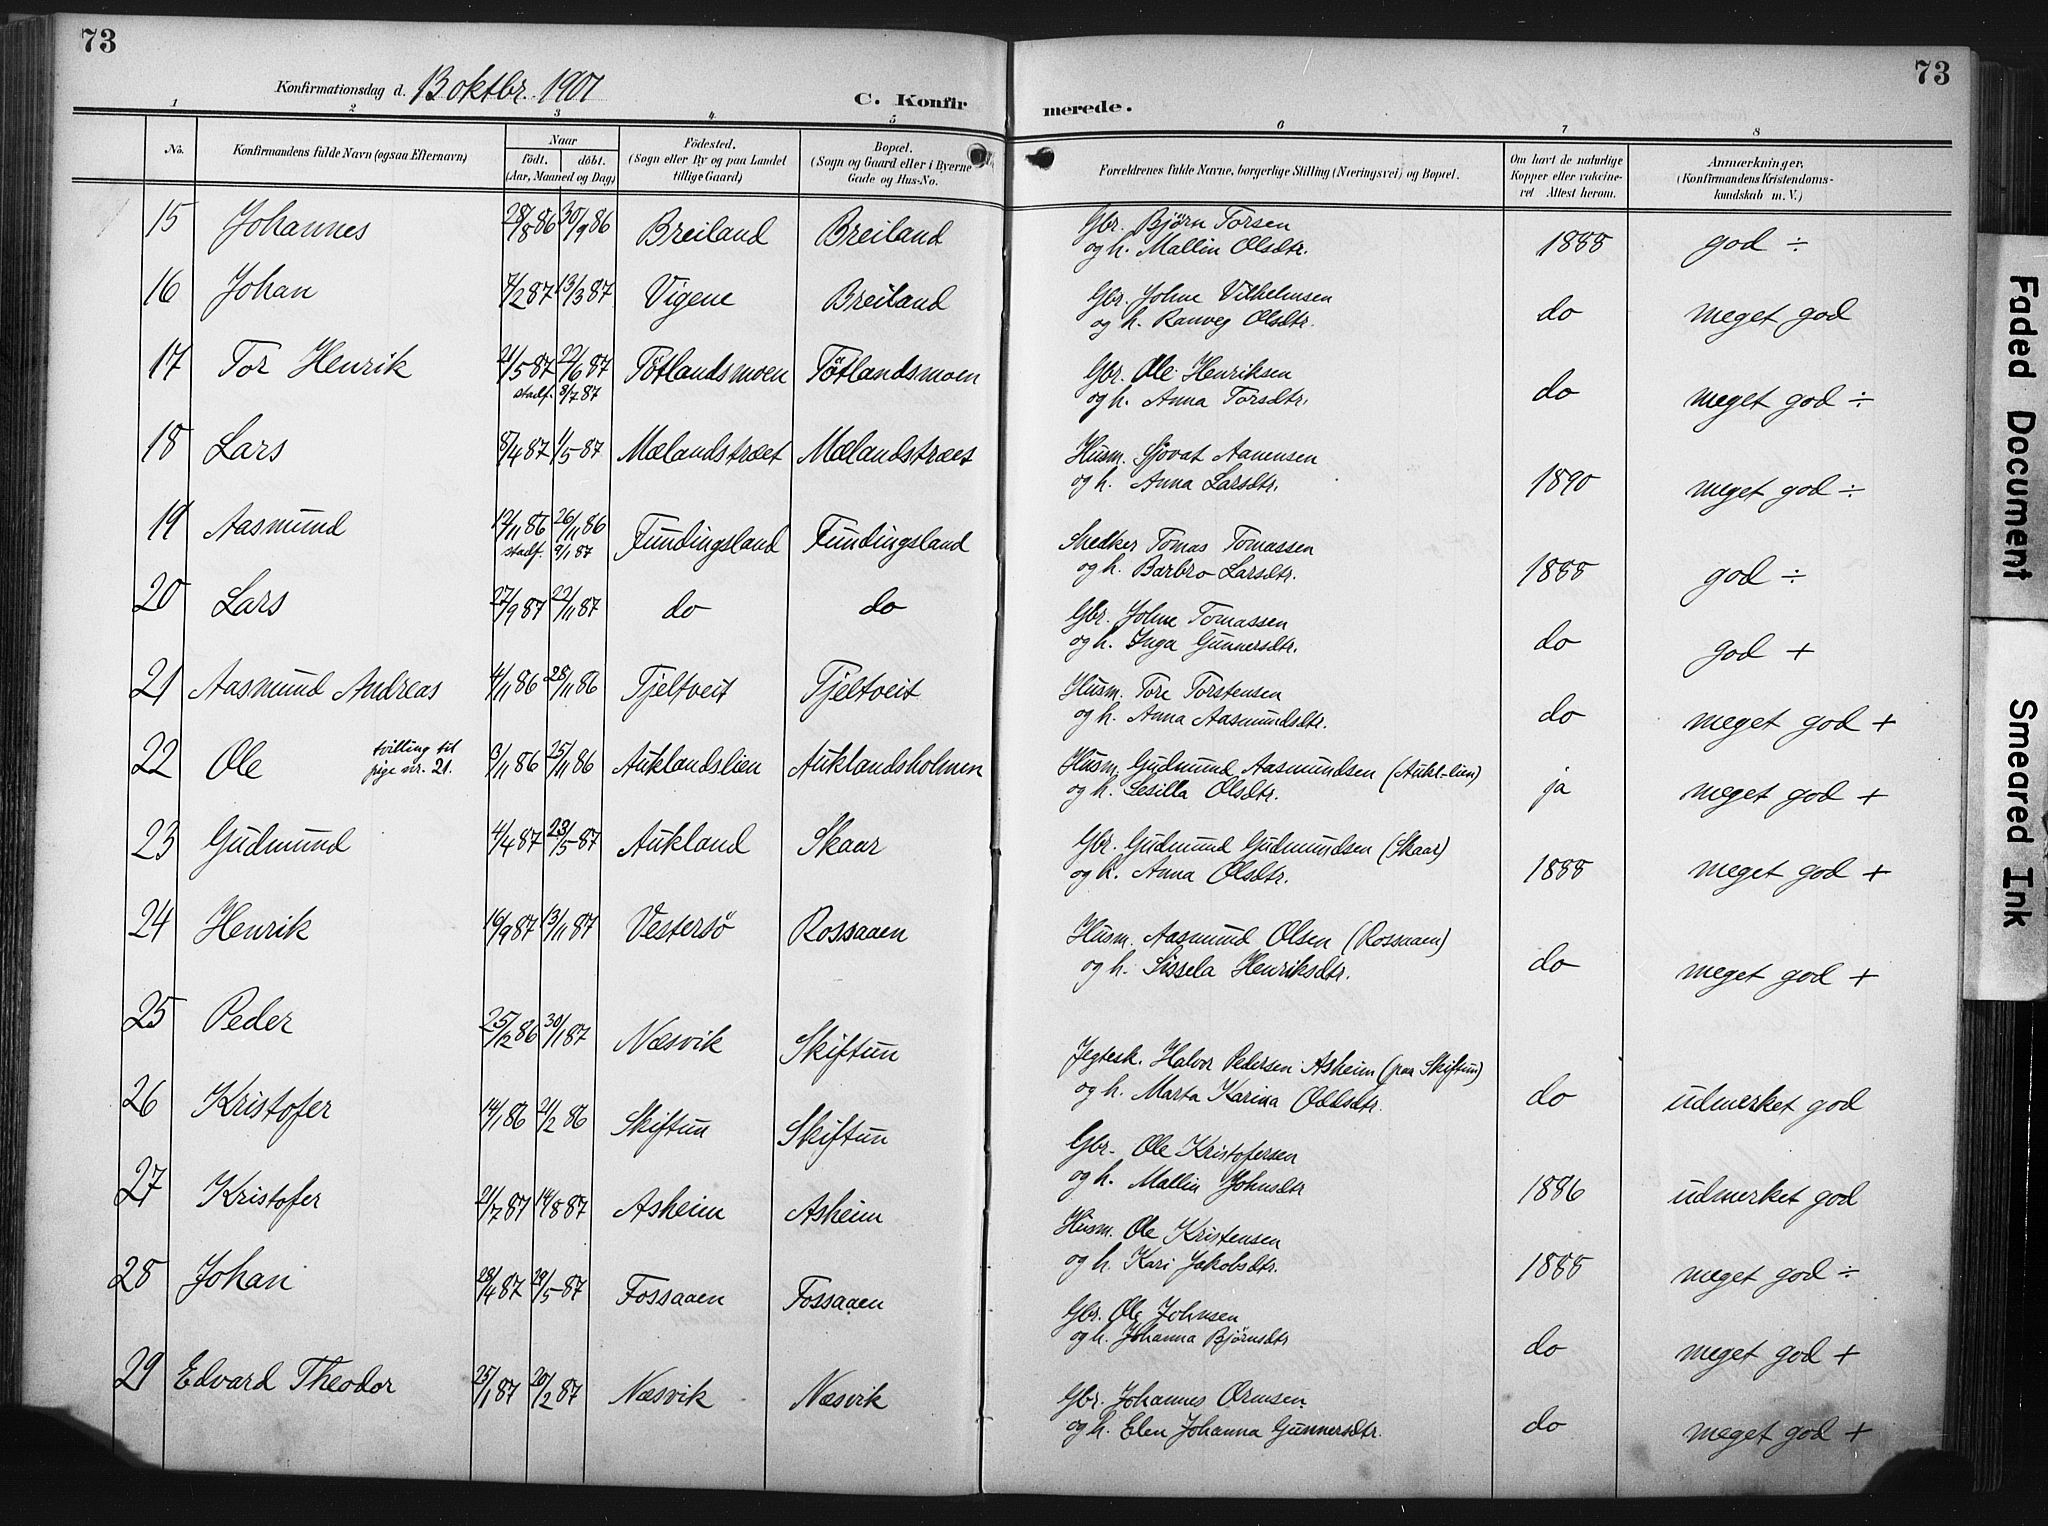 73
73
Konfirmationsdag d. 13 oktbr. 1901
C. Konfirmerede.
1 2 3 4 5 6 7 8
No.
Konfirmandens fulde Navn (ogsaa Efternavn)
Naar
født. døbt.
(Aar, Maaned og Dag)
Fødested.
(Sogn eller By og paa Landet
tillige Gaard)
Bopæl.
(Sogn og Gaard eller i Byerne
Gade og Hus-No.
Forældrenes fulde Navne, borgerlige Stilling (Næringsvei) og Bopæl.
Om havt de naturlige
Kopper eller vakcine-
ret Attest herom.
Anmærkninger,
(Konfirmandens Kristendoms-
kundskab m. V.)
15 Johannes 28/8 86 30/9 86 Breiland Breiland Gbr. Bjørn Torsen
og h. Mallin Olsdtr. 1888 god ÷
16 Johan 7/2 87 13/3 87 Vigene Breiland Gbr. Johne Vilhelmsen
og h. Ranveg Olsdtr. do meget god
17 Tor Henrik 21/5 87 22/6 87 Tøtlandsmoen Tøtlandsmoen Gbr. Ole Henriksen
stadf. 8/7 87 og h. Anna Torsdtr. do meget god ÷
18 Lars 8/4 87 1/5 87 Mælandstræet Mælandstraes Husm. Sjovat Aanensen
og h. Anna Larsdtr. 1890 meget god ÷
19 Aasmund 12/11 86 26/11 86 Fundingsland Fundingsland Snedker Tomas Tomassen
stadf. 9/1 87 og h. Barbro Larsdtr. 1888 god ÷
20 Lars 27/9 87 22/11 87 do do Gbr. Johne Tomassen
og h. Inga Gunnersdtr. do god +
21 Aasmund Andreas 4/11 86 28/11 86 Tjeltveit Tjeltveit Husm. Tore Torstensen
og h. Anna Aasmundsdtr. do meget god +
22 Ole tvilling til
pige nr. 21. 3/11 86 25/11 86 Auklandslien Auklandsholmen Husm. Gudmund Aasmundsen (Aukl-lien)
og h. Sesilla Olsdtr. ja meget god +
23 Gudmund 4/4 87 23/5 87 Aukland Skaar Gbr. Gudmund Gudmundsen (Skaar)
og h. Anna Olsdtr. 1888 meget god +
24 Henrik 16/9 87 13/11 87 Vestersø Rossaaen Husm. Aasmund Olsen (Rossaaen)
og h. Sissela Henriksdtr. do meget god +
25 Peder 25/12 86 30/1 87 Næsvik Skiftun Jegtesk. Halvor Pedersen Asheim (paa Skiftun)
og h. Marta Karina Oddsdtr. do udmerket god
26 Kristofer 14/1 86 21/2 86 Skiftun Skiftun Gbr. Ole Kristofersen
og h. Mallin Johnsdtr 1886 udmerket god
27 Kristofer 21/7 87 14/8 87 Asheim Asheim Husm. Ole Kristensen
og h. Kari Jakobsdtr. 1888 meget god ÷
28 Johan 28/4 87 29/5 87 Fossaaen Fossaaen Gbr. Ole Johnsen
og h. Johanna Bjørnsdtr do meget god +
29 Edvard Theodor 25/1 87 20/2 87 Næsvik Næsvik Gbr. Johannes Ormsen
og h. Elen Johanna Gunnersdtr. do meget god +
Faded Document
Smeared Ink